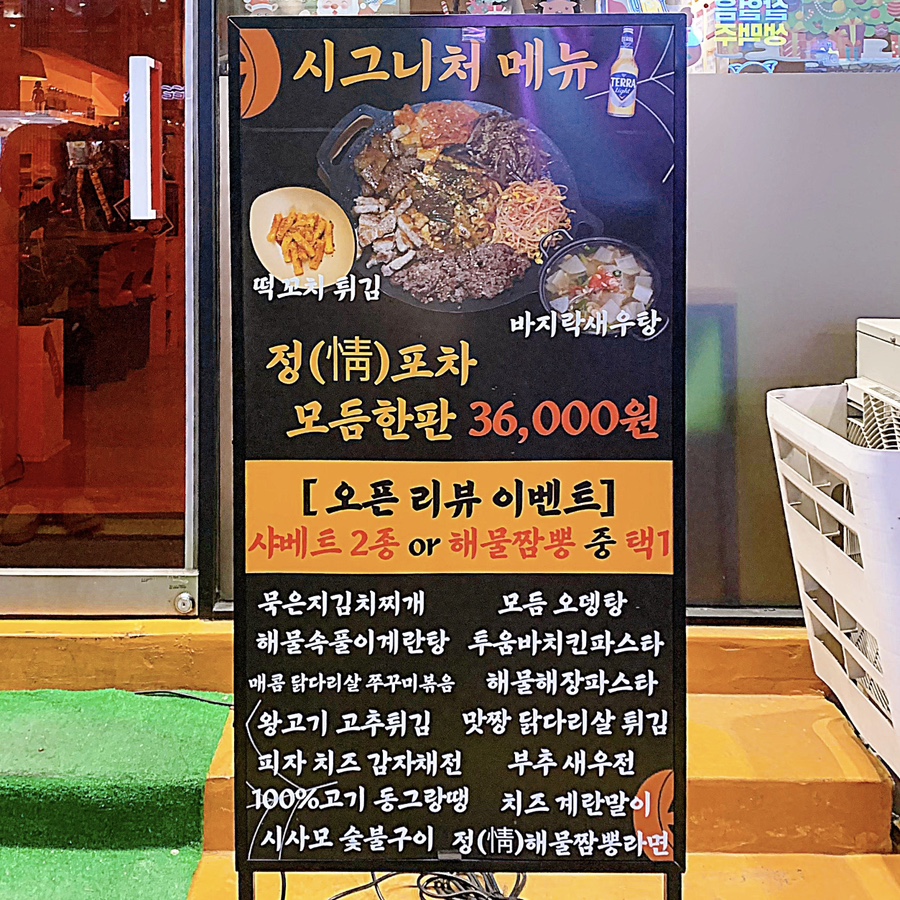 시그니처 메뉴
TERRA
Light
떡꼬치 튀김
바지락새우탕
정(情)포차
모듬한판 36,000원
[오픈 리뷰 이벤트]
샤베트 2종 or 해물짬뽕 중 택1
묵은지김치찌개
모듬 오뎅탕
해물속풀이계란탕
투움바치킨파스타
매콤 닭다리살 쭈꾸미볶음
해물해장파스타
왕고기 고추튀김
맛짱 닭다리살 튀김
피자 치즈 감자채전
부추 새우전
100%고기 동그랑땡
치즈 계란말이
시사모 숯불구이
정(情)해물짬뽕라면